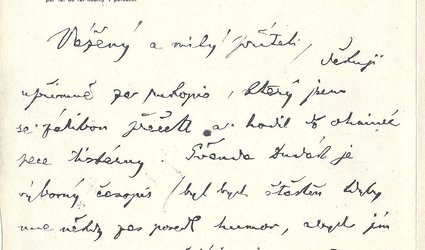 Vážený a milý příteli, děkuji
upřímně za rukopis, který jsem
se zálibou přečetl a hodil do ohnivé
pece tiskárny. Švanda Dudák je
výborný časopis / byl bych šťasten kdyby
mne někdy zas posedl humor, abych jím